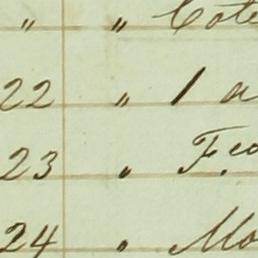 " " Cote
22 " 1 a
23 " Feo
24 " Mo